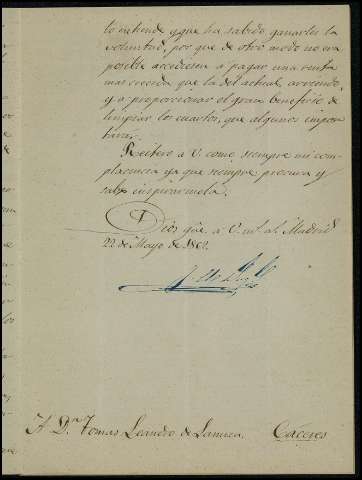 to entiende y que ha sabido ganarles la
voluntad, por que de otro modo no era
posible accediesen a pagar una renta
mas crecida que la del actual arriendo,
y a proporcionar el gran beneficio de
limpiar los cuartos, que algunos
Reitero a V. como siempre mi com-
placencia ya que siempre procura y
sabe inspirarmela.
Dios gūe. a V. m.s a.s Madrid
22 de Mayo de
A D.n Tomas Leandro de Lanuza. Cáceres